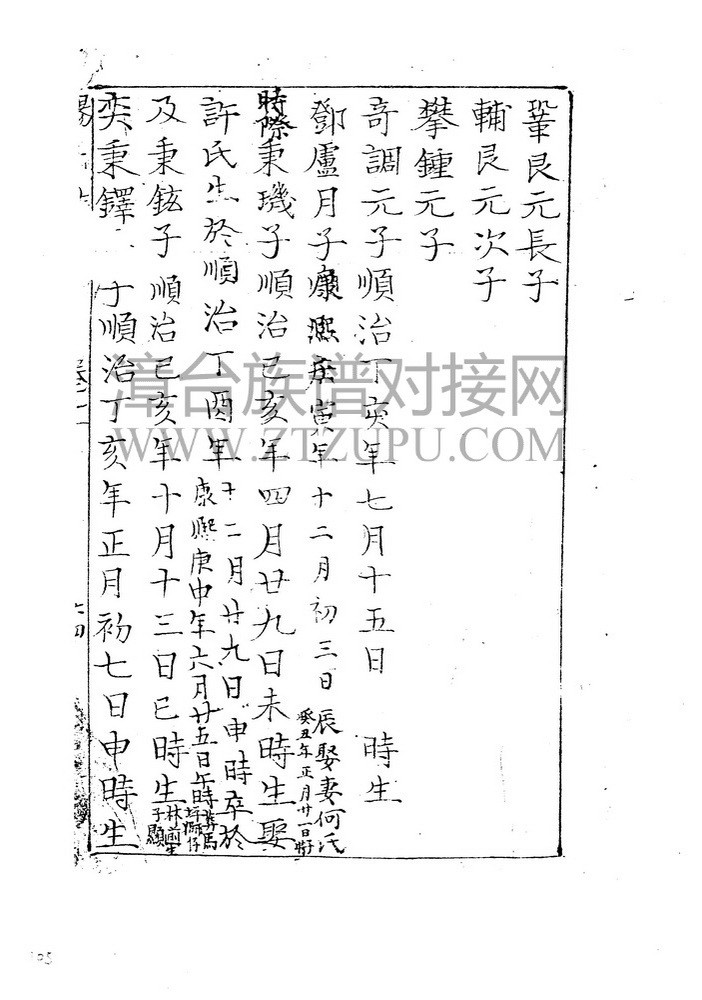 鞏艮元長子
輔艮元次子
攀鍾元子
奇調元子順治丁亥年七月十五日 時生
鄧盧月子康熙 寅年十二月初三日辰娶妻何氏
癸丑年正月廿一日時
時際秉璣子順治己亥年四月廿九日未時生娶
許氏生於順治丁酉年十二月廿九日申時卒於
康熙庚申年六月廿五日午時葬馬
坪獅仔
及秉鉉子順治己亥年十月十三日巳時生
林前生
子顯
奕秉鐸 子順治丁亥年正月初七日申時生
漳台族谱对接网
WWW.ZTZUPU.COM